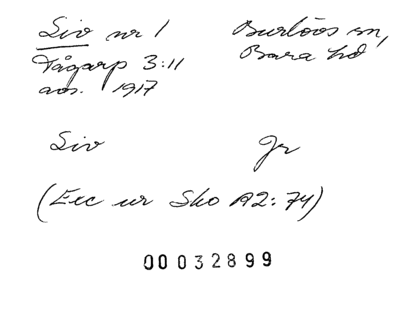 Liv nr 1
Tågarp 3:11
avs. 1917
Burlövs sn,
Bara hd
Liv
Jr
(Exc ur Sko A2:74)
00 032899